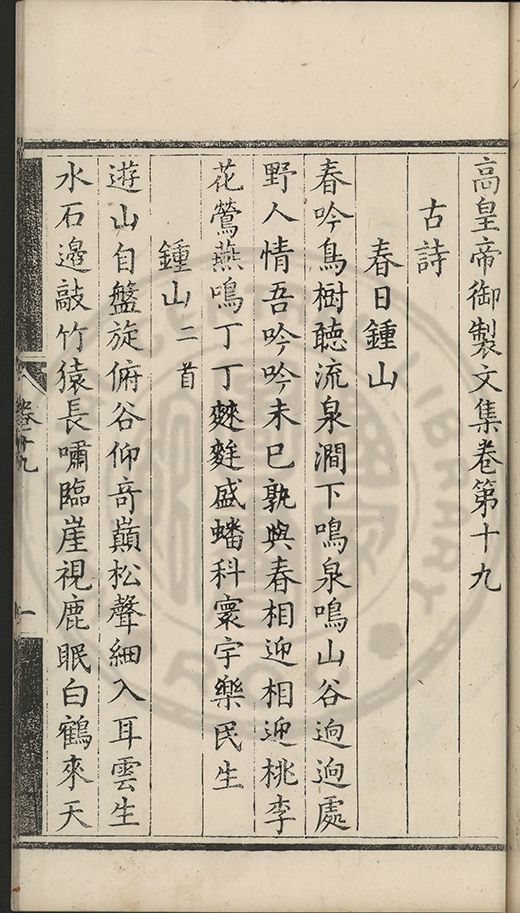 高皇帝御製文集卷第十九
古詩
春日鍾山
春吟鳥樹聽流泉澗下鳴泉鳴山谷逈逈處
野人情吾吟吟未已孰與春相迎相迎桃李
花鶯燕鳴丁丁麰麰盛蟠科寰宇樂民生
鍾山二首
遊山自盤旋俯谷仰竒巔松聲細入耳雲生
水石邊敲竹猿長嘯臨崖視鹿眠白鶴來天
卷十九
一